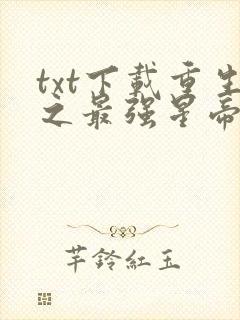 txt下載重生
之最強星帝
芊鈴紅玉